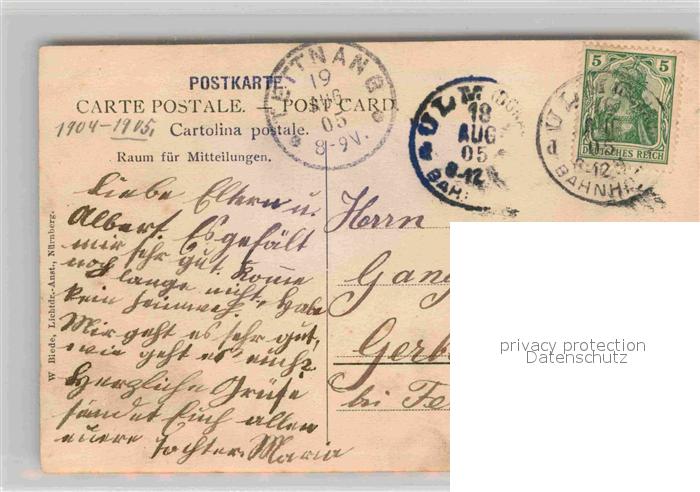 POSTKARTE
CARTE POSTALE. — POST CARD.
1904-1905.
Cartolina postale.
Raum für Mitteilungen.
TETTNANG
19
AUG
05
8-9V.
ULM
18
AUG
05
8-12
BAH
ULM
BAHNH
5 5
DEUTSCHES REICH
Liebe Eltern u.
Albert. Es gefält
mir sehr gut, komme
noch lange nicht, habe
kein Heimweh.
Mir geht es sehr gut,
wie geht es euch?
Herzliche Grüße
sendet Euch allen
euere Tochter Maria
Herrn
Gang
Gerb
bei Te
W. Biede, Lichtdr.-Anst., Nürnberg.
privacy protection
Datenschutz